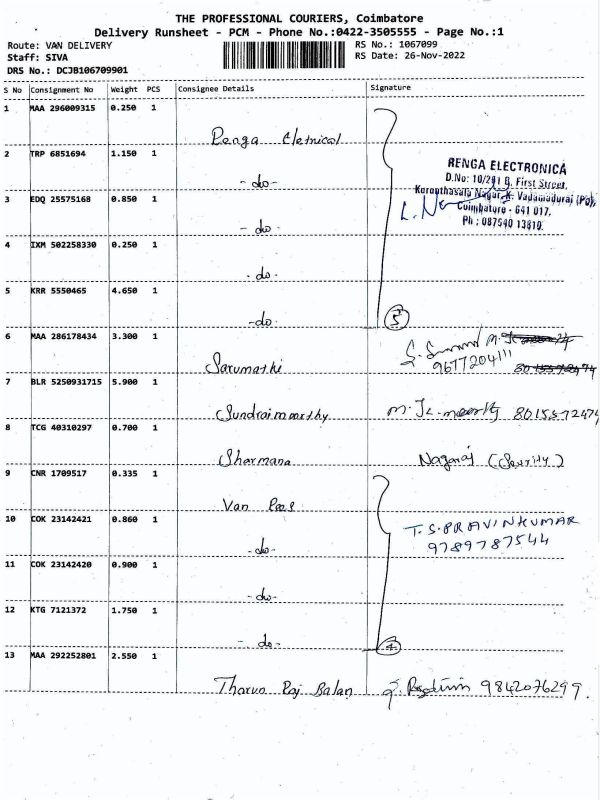 THE PROFESSIONAL COURIERS, Coimbatore
Delivery Runsheet - PCM - Phone No.:0422-3505555 - Page No.:1
Route: VAN DELIVERY RS No.: 1067099
Staff: SIVA RS Date: 26-Nov-2022
DRS No.: DCJB106709901
S No Consignment No Weight PCS Consignee Details Signature
1 MAA 296009315 0.250 1
Renga Eletnical
2 TRP 6851694 1.150 1
- do -
RENGA ELECTRONICA
D.No: 10/2 1 G. First Street,
3 EDQ 25575168 0.850 1
Nagar, K. Vadamadurai (Po),
Coimbatore - 641 017.
- do -
Ph : 087540 13810.
4 IXM 502258330 0.250 1
- do -
5 KRR 5550465 4.650 1
- do -
5
6 MAA 286178434 3.300 1
Sarumathi
9677204111
7 BLR 5250931715 5.900 1
Sundraimoorthy
8015572474
8 TCG 40310297 0.700 1
Sharmana Nagaraj (Security)
9 CNR 1709517 0.335 1
Van
10 COK 23142421 0.860 1
T. S. PRAVIN KUMAR
9789787544
- do -
11 COK 23142420 0.900 1
- do -
12 KTG 7121372 1.750 1
- do -
4
13 MAA 292252801 2.550 1
Tharun Raj Balan 9842076299.